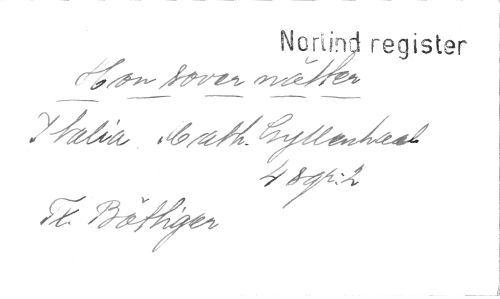 Norlind register
Hon sover nätter
Thalia. Math. Gyllenhaal
48 gr: 2
Tx. Böttiger